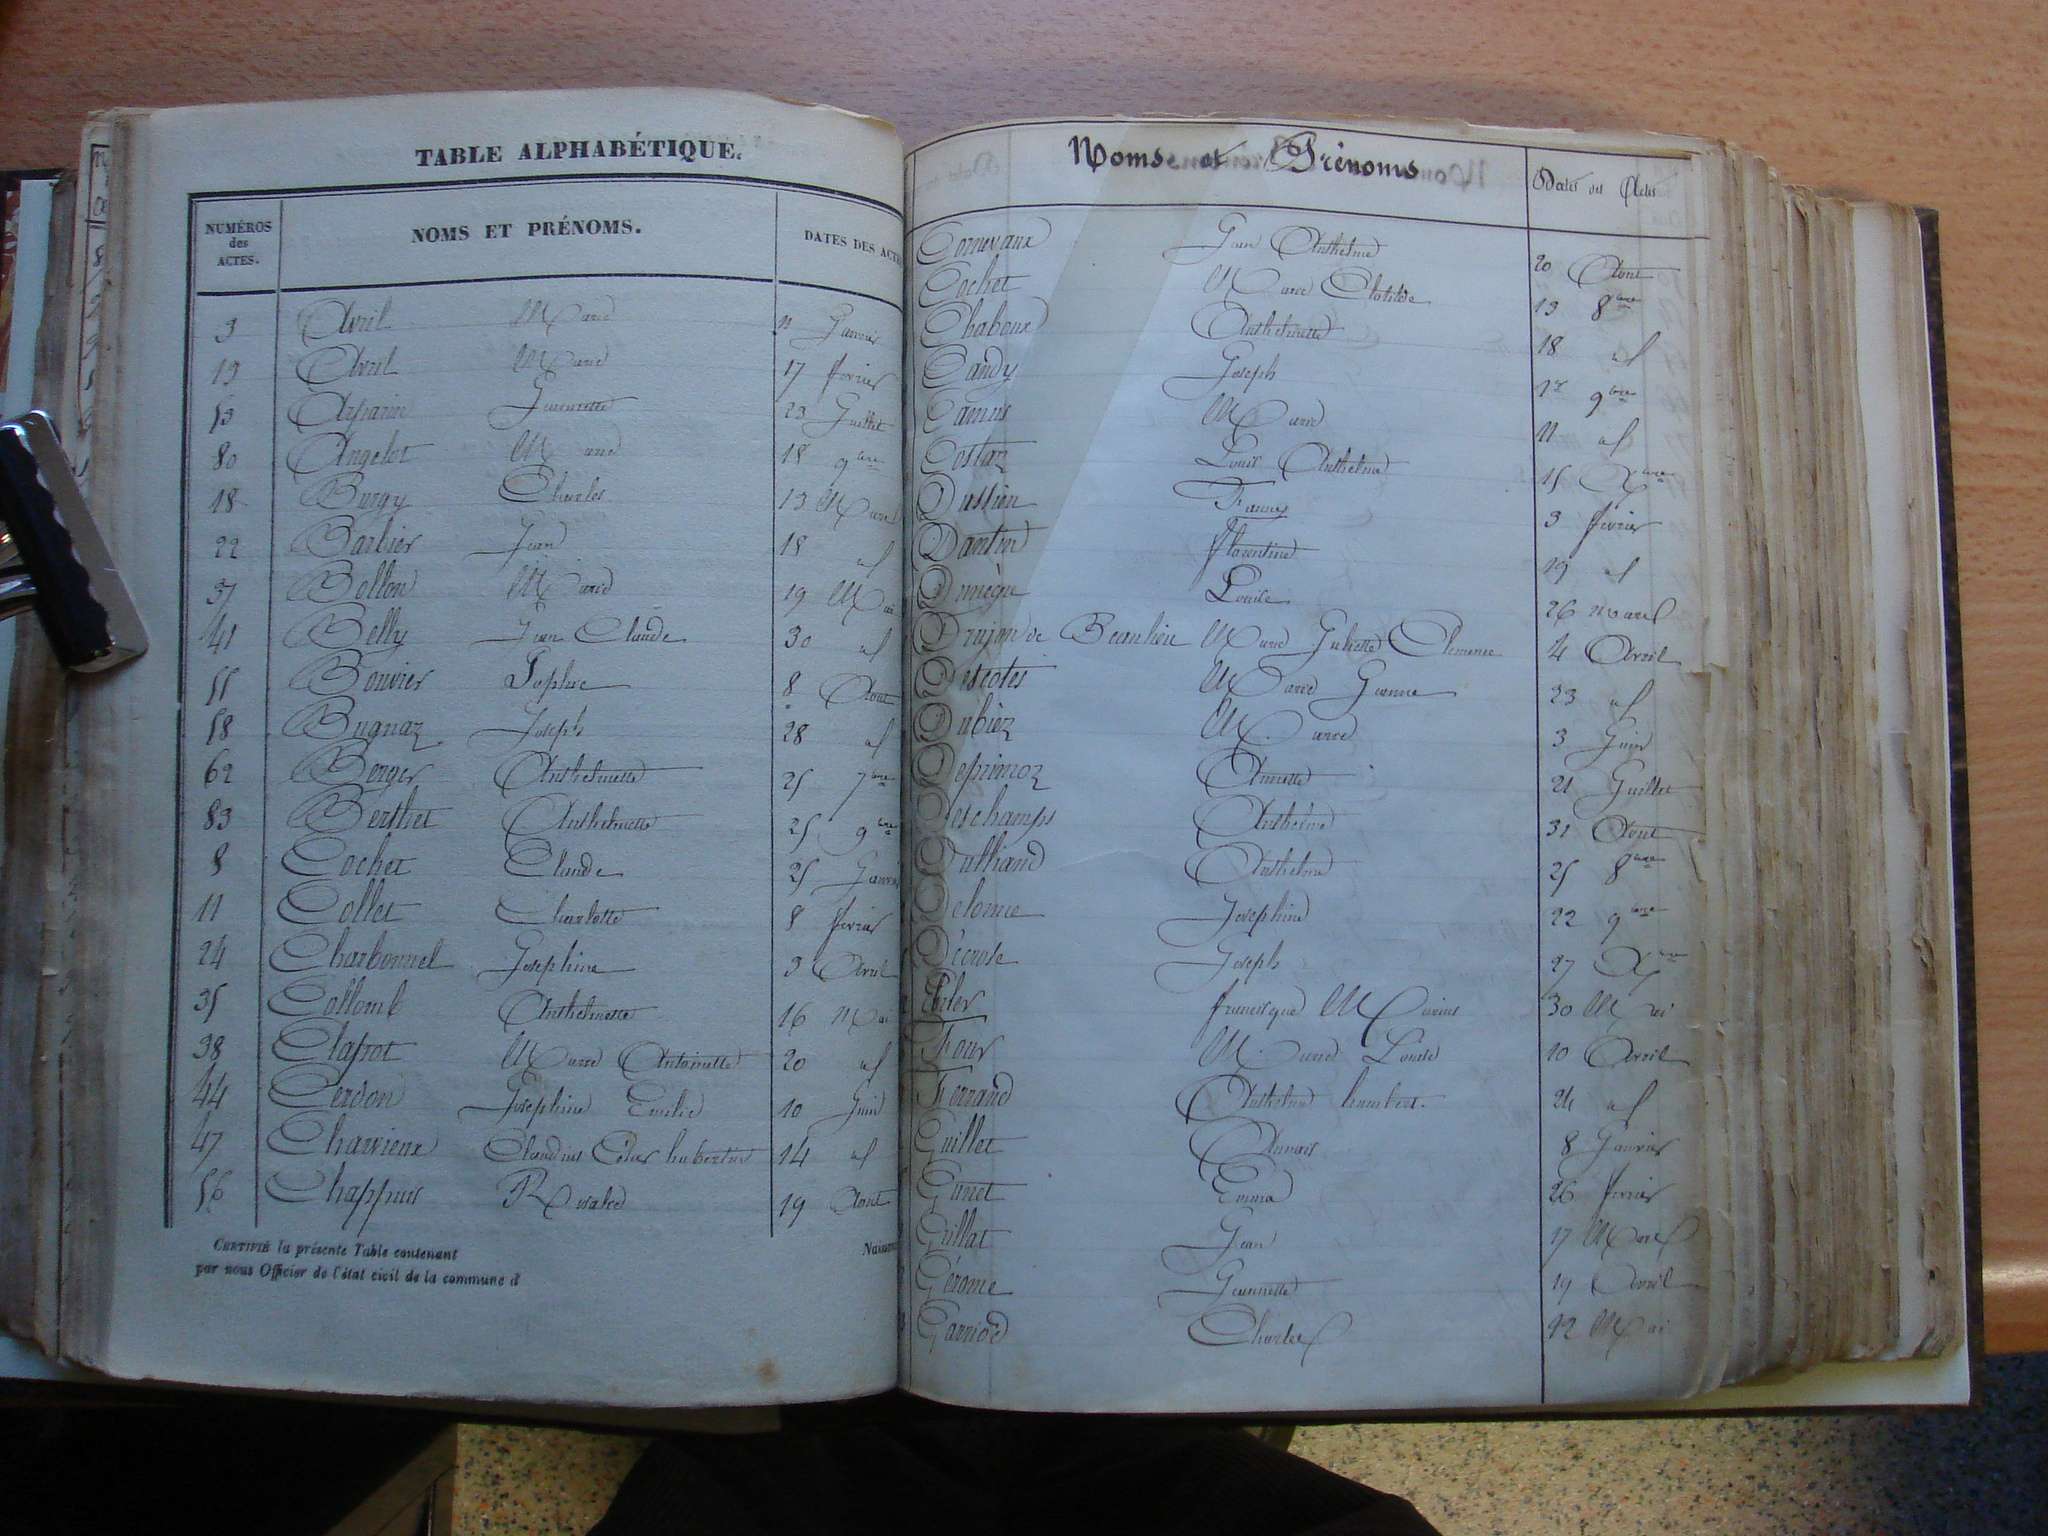 TABLE ALPHABÉTIQUE.
NUMÉROS des ACTES. NOMS ET PRÉNOMS. DATES DES ACTE
3 Avril Marie 11 Janvier
19 Avril Marie 17 février
53 Jeannette 23 Juillet
80 Angelot Marie 18 9bre
18 Burgy Charles 13 Mars
22 Barbier Jean 18 id
37 Bollon Marie 19 Mai
41 Belly Jean Claude 30 id
55 Bouvier Sophie 8 Aout
58 Bugnaz Joseph 28 id
62 Berger Anthelmette 25 7bre
83 Berthet Anthelmette 25 9bre
8 Cochet Claude 25 Janvier
11 Collet Charlotte 8 février
24 Charbonnel Josephine 3 Avril
35 Collomb Anthelmette 16 Mai
38 Clapot Marie Antoinette 20 id
44 Cerdon Josephine Emelie 10 Juin
47 Charvieux Claudius hubertus 14 id
56 Chappuis Rosalie 19 Aout
CERTIFIÉ la présente Table contenant Naissan
par nous Officier de l'état civil de la commune d
Noms et Prénoms Dates des Actes
Cornevaux Jean Anthelme 20 Aout
Cochet Marie Clotilde 13 8bre
Chaboux Anthelmette 18 id
Candy Joseph 9bre
Camus Marie 11 id
Costaz Louis Anthelme 15 Xbre
Fanny 3 février
Dantin Florentine 19 id
Dumège Louise 26 mars
Drujon de Beaulieu Marie Juliette Clemence 4 Avril
Descotes Marie Jeanne 23 id
Dubiez Marie 3 Juin
Depimoz Annette 21 Juillet
Deschamps Anthelme 31 Aout
Dulliand Anthelme 25 8bre
Delorme Josephine 22 9bre
Décrose Joseph 27 Xbre
francisque Marius 30 Mai
Four Marie Louise 10 Avril
Ferrand Anthelme humbert. 24 id
Guillet Annais 8 Janvier
Emma 26 février
Gillat Jean 17 Mars
Gérome Jeannette 19 Avril
Garriod Charles 22 Mai